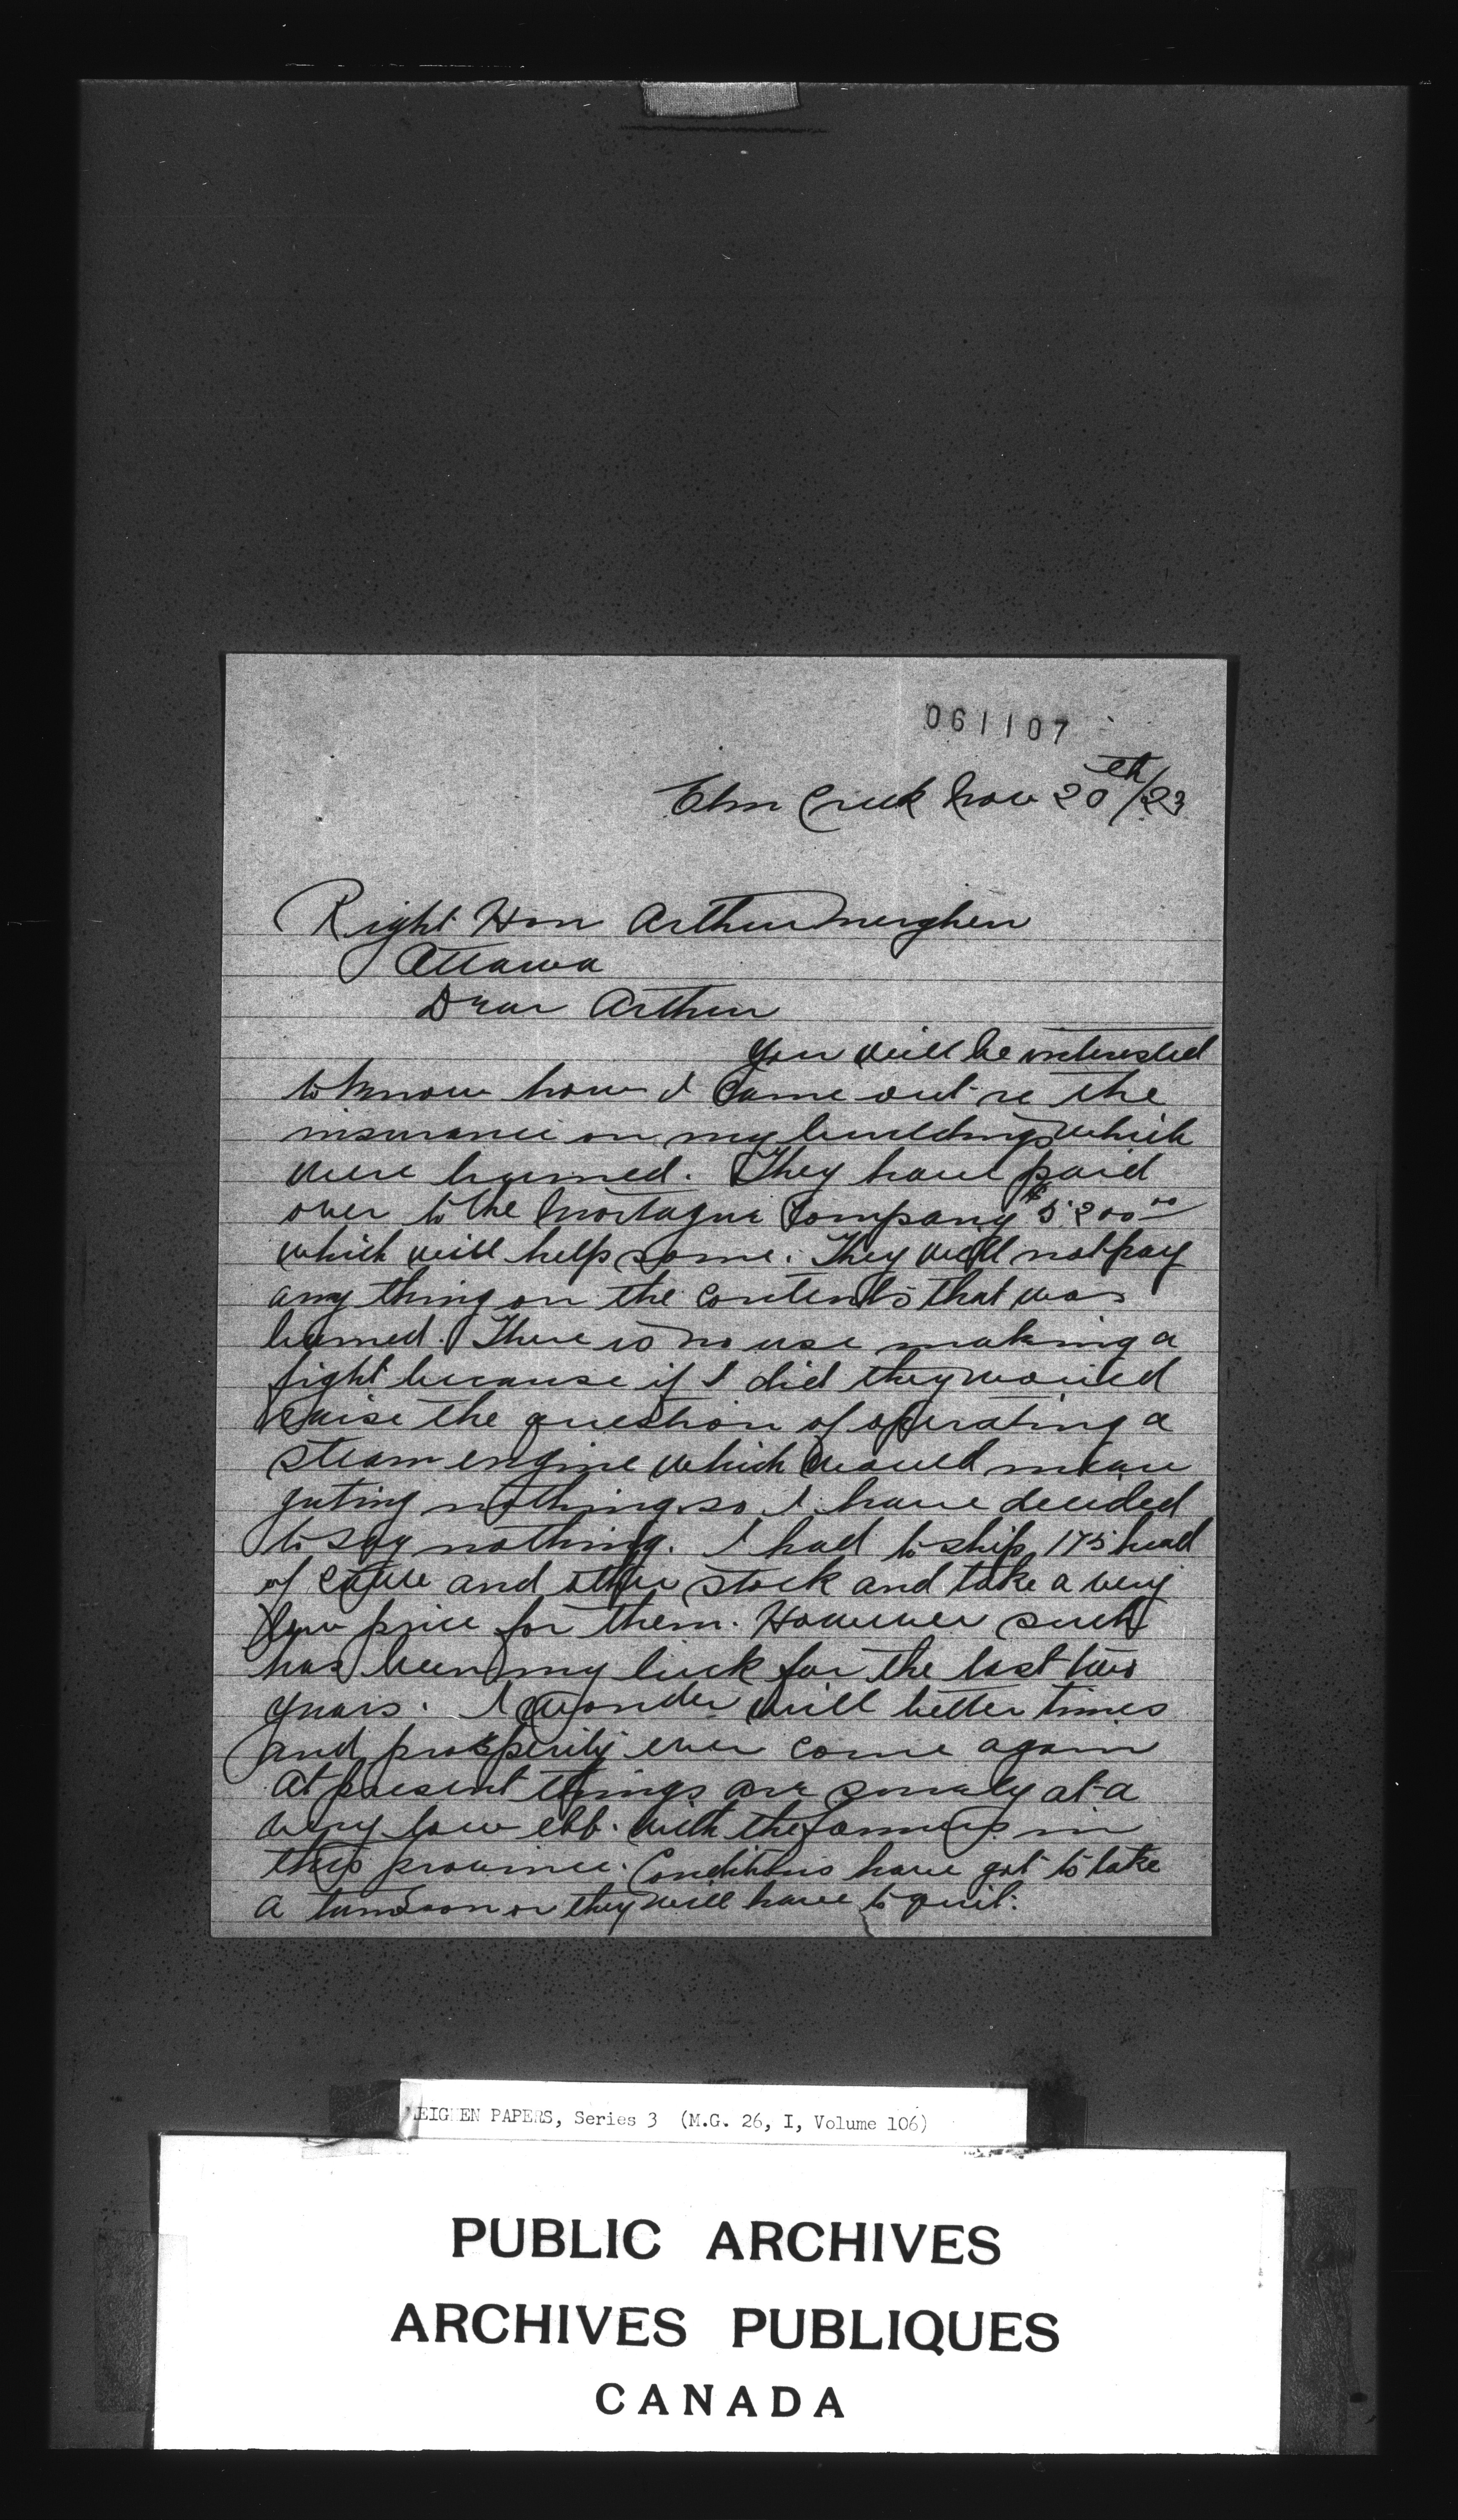 061107
Elm Creek Nov 20th/23
Right Hon Arthur Meighen
Ottawa
Dear Arthur
You will be interested
to know how I came out re the
insurance on my buildings which
were burned. They have paid
over to the Mortague Company $5200.00
which will help some. They will not pay
any thing on the contents that was
burned. There is no use making a
fight because if I did they would
raise the question of operating a
steam engine which would mean
geting nothing so I have decided
to say nothing. I had to ship 175 head
of cattle and other stock and take a very
low price for them. However such
has been my luck for the last two
years. I wonder will better times
and prosperity ever come again
At present things are surely at a
very low ebb. with the farmers in
this province. Conditions have got to take
a turn soon or they will have to quit.
MEIGHEN PAPERS, Series 3 (M.G. 26, I, Volume 106)
PUBLIC ARCHIVES
ARCHIVES PUBLIQUES
CANADA